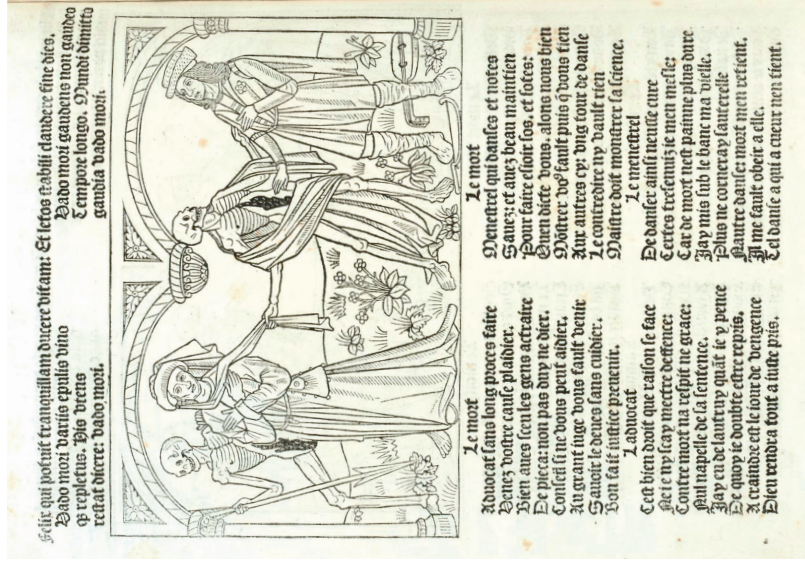 Felix qui potuit tranquillam ducere vitam: Et letos stabili claudere fine dies.
Vado mori variis epulis vino
qz repletus. His utens
restat dicere: vado mori.
Vado mori gaudens non gaudeo
Tempore longo. Mundi dimitto
gaudia vado mori.
Le mort
Advocat sans long proces faire
Venez vostre cause plaidier.
Bien aves sceu les gens actraire
De pieca: non pas duy ne dier.
Conseil si ne vous peut aidier.
Au grant iuge vous fault venir
Savoir le deues sans cuidier.
Bon fait iustice prevenir.
Ladvocat
Cest bien droit que raison se face
Ne ie ny scay mectre deffence:
Contre mort na respit ne grace:
Nul napelle de sa sentence.
Jay eu de lautruy quãt ie y pence
De quoy ie doubte estre repris.
A craindre est le iour de vengence
Dieu rendra tout a iuste pris.
Le mort
Menestrel qui danses et notes
Savez: et avez beau maintien
Pour faire esioir sos. et sotes:
Quen dicte vous. alons nous bien
Mõstrer vo9 fault puis q̃ vous tien
Aux autres cy: vng tour de danse
Le contredire ny vault rien
Maistre doit monstrer sa science.
Le menestrel
De danser ainsi neusse cure
Certes tresenuiz ie men mesle:
Car de mort nest painne plus dure
Jay mis sub le banc ma vielle.
Plus ne corneray sauterelle
Nautre danse: mort men retient.
Il me fault obeir a elle.
Tel danse a qui a cueur nen tient.